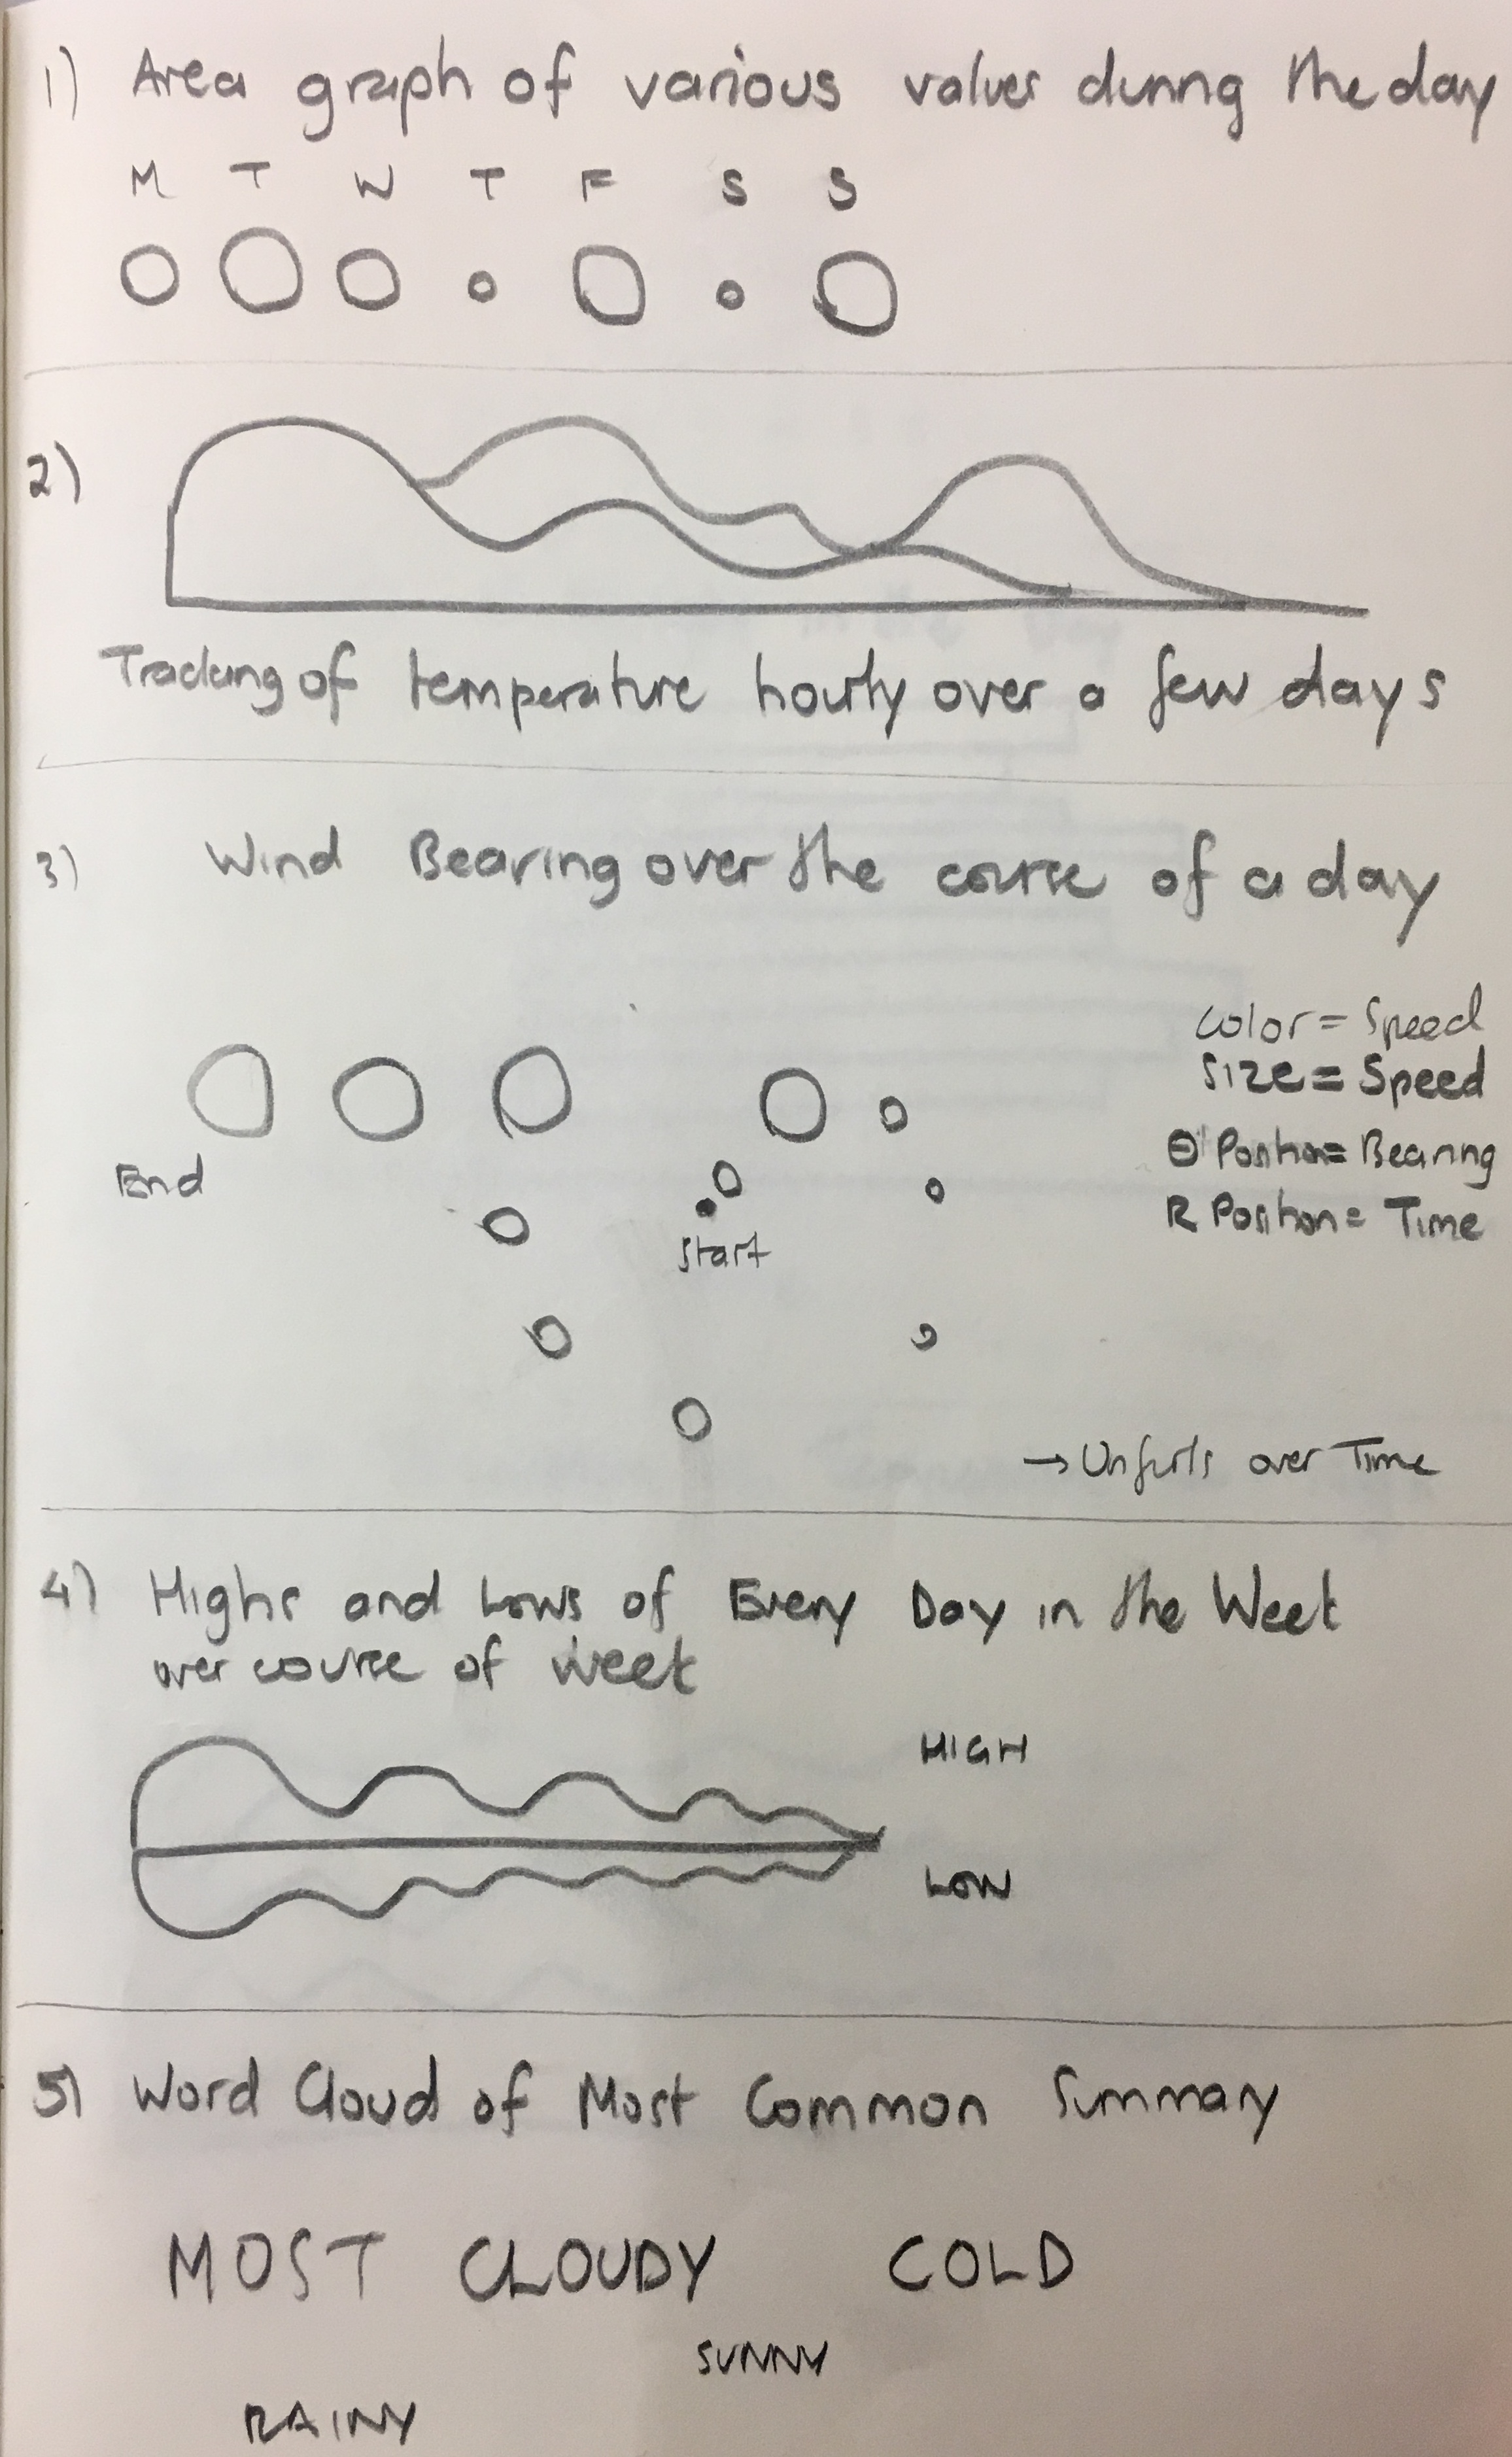 1) Area graph of various values during the day
M T W T F S S
2)
Tracking of temperature hourly over a few days
3) Wind Bearing over the course of a day
Color = Speed
Size = Speed
Θ Position = Bearing
R Position = Time
End
Start
→ Unfurls over Time
4) Highs and Lows of Every Day in the Week
over course of week
HIGH
LOW
5) Word Cloud of Most Common Summary
MOST CLOUDY COLD
SUNNY
RAINY